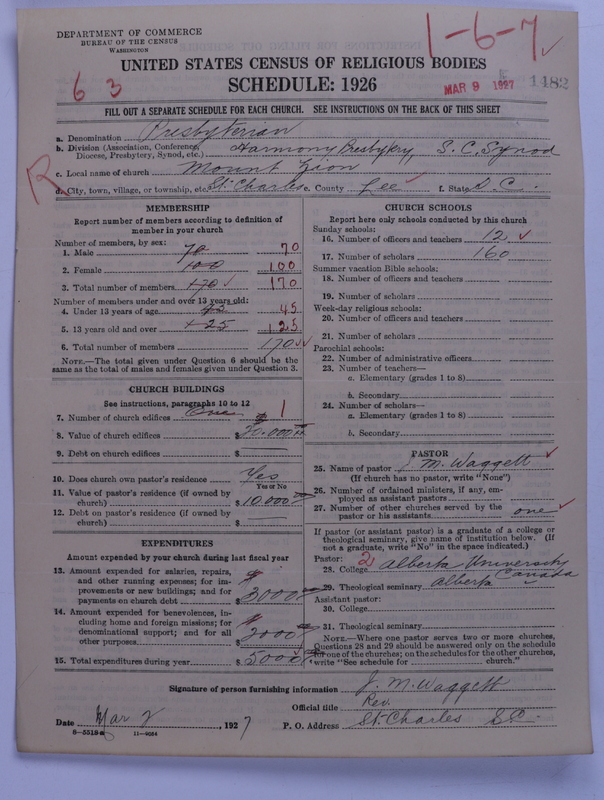 DEPARTMENT OF COMMERCE
BUREAU OF THE CENSUS
WASHINGTON
1-6-7
UNITED STATES CENSUS OF RELIGIOUS BODIES
SCHEDULE: 1926
6 3
MAR 9 1927
1482
FILL OUT A SEPARATE SCHEDULE FOR EACH CHURCH. SEE INSTRUCTIONS ON THE BACK OF THIS SHEET
R
a. Denomination Presbyterian
b. Division (Association, Conference, Diocese, Presbytery, Synod, etc.) Harmony Presbytery, S.C. Synod
c. Local name of church Mount Zion
d. City, town, village, or township, etc. St. Charles e. County Lee f. State S.C.
MEMBERSHIP
Report number of members according to definition of
member in your church
Number of members, by sex:
1. Male 70 70
2. Female 100 100
3. Total number of members 170 170
Number of members under and over 13 years old:
4. Under 13 years of age 45 45
5. 13 years old and over 125 125
6. Total number of members 170
NOTE.—The total given under Question 6 should be the
same as the total of males and females given under Question 3.
CHURCH BUILDINGS
See instructions, paragraphs 10 to 12
7. Number of church edifices One 1
8. Value of church edifices $
9. Debt on church edifices $
10. Does church own pastor's residence Yes
Yes or No
11. Value of pastor's residence (if owned by
church) $10,000
12. Debt on pastor's residence (if owned by
church) $
EXPENDITURES
Amount expended by your church during last fiscal year
13. Amount expended for salaries, repairs,
and other running expenses; for im-
provements or new buildings; and for
payments on church debt $3000
14. Amount expended for benevolences, in-
cluding home and foreign missions; for
denominational support; and for all
other purposes $2000
15. Total expenditures during year $5000
CHURCH SCHOOLS
Report here only schools conducted by this church
Sunday schools:
16. Number of officers and teachers 12
17. Number of scholars 160
Summer vacation Bible schools:
18. Number of officers and teachers
19. Number of scholars
Week-day religious schools:
20. Number of officers and teachers
21. Number of scholars
Parochial schools:
22. Number of administrative officers
23. Number of teachers—
a. Elementary (grades 1 to 8)
b. Secondary
24. Number of scholars—
a. Elementary (grades 1 to 8)
b. Secondary
PASTOR
25. Name of pastor J. M. Waggett
(If church has no pastor, write "None")
26. Number of ordained ministers, if any, em-
ployed as assistant pastors
27. Number of other churches served by the
pastor or his assistants one
If pastor (or assistant pastor) is a graduate of a college or
theological seminary, give name of institution below. (If
not a graduate, write "No" in the space indicated.)
Pastor: 2
28. College Alberta University
29. Theological seminary Alberta Canada
Assistant pastor:
30. College
31. Theological seminary
NOTE.—Where one pastor serves two or more churches,
Questions 28 and 29 should be answered only on the schedule
for one of the churches; on the schedules for the other churches,
write "See schedule for church."
Signature of person furnishing information J. M. Waggett
Official title Rev.
Date Mar 2, 1927 P. O. Address St. Charles S.C.
11—9054